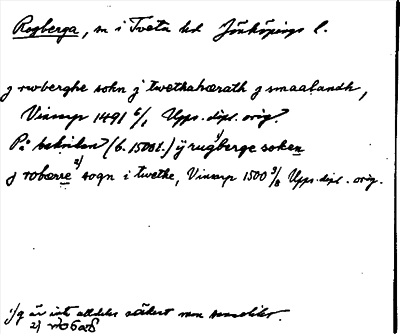 Rogberga, sn i Tveta hd Jönköpings l.
j rwberghe sokn j twethahærath j smaalandh,
Vinarp 1491 6/1 Upps. dipl. orig.
På baksidan (b. 1500t.) ÿ rugberge 1) soken
j robærre 2) sogn i twethe, Vinarp 1500 3/8 Upps. dipl. orig.
1) g är inte alldeles säkert men sannolikt.
2)